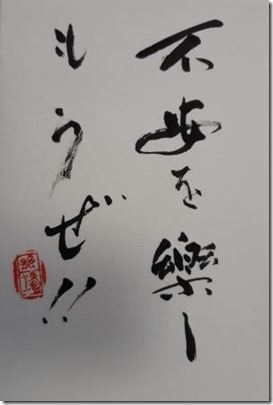 不安を樂し
もうぜ!!